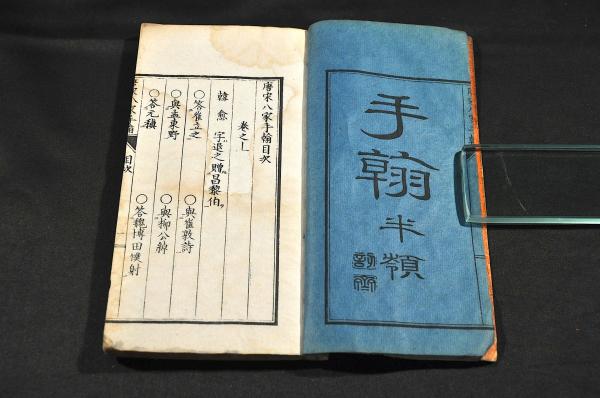 手翰
半
唐宋八家手翰目次
卷之上
韓愈 字退之贈昌黎伯
○答崔立之 ○與崔敦詩
○與孟東野 ○與柳公綽
○答元稹 ○答魏博田僕射
目次